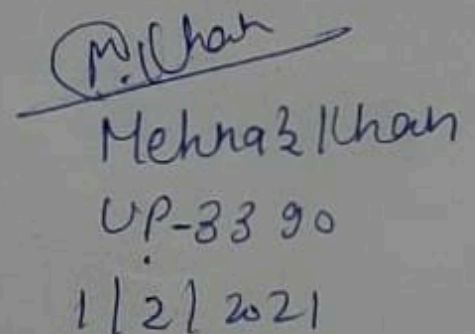 M. Khan
Mehnaz Khan
UP-3390
1/2/2021